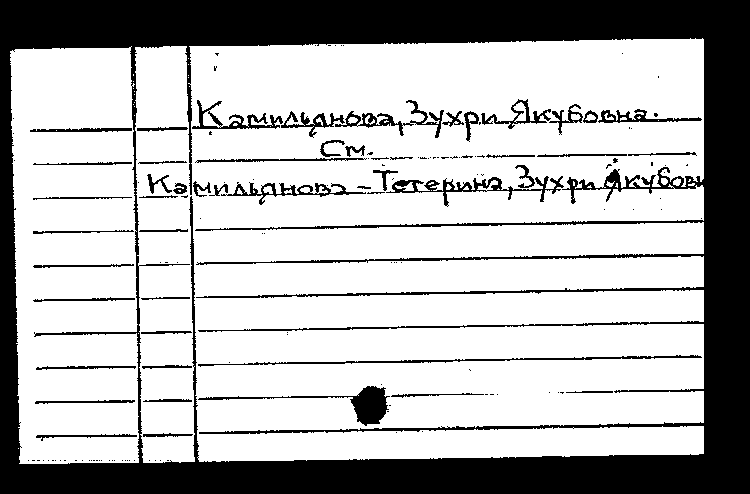 Камильянова, Зухри Якубовна.
См.
Камильянова - Тетерина, Зухри Якубовн